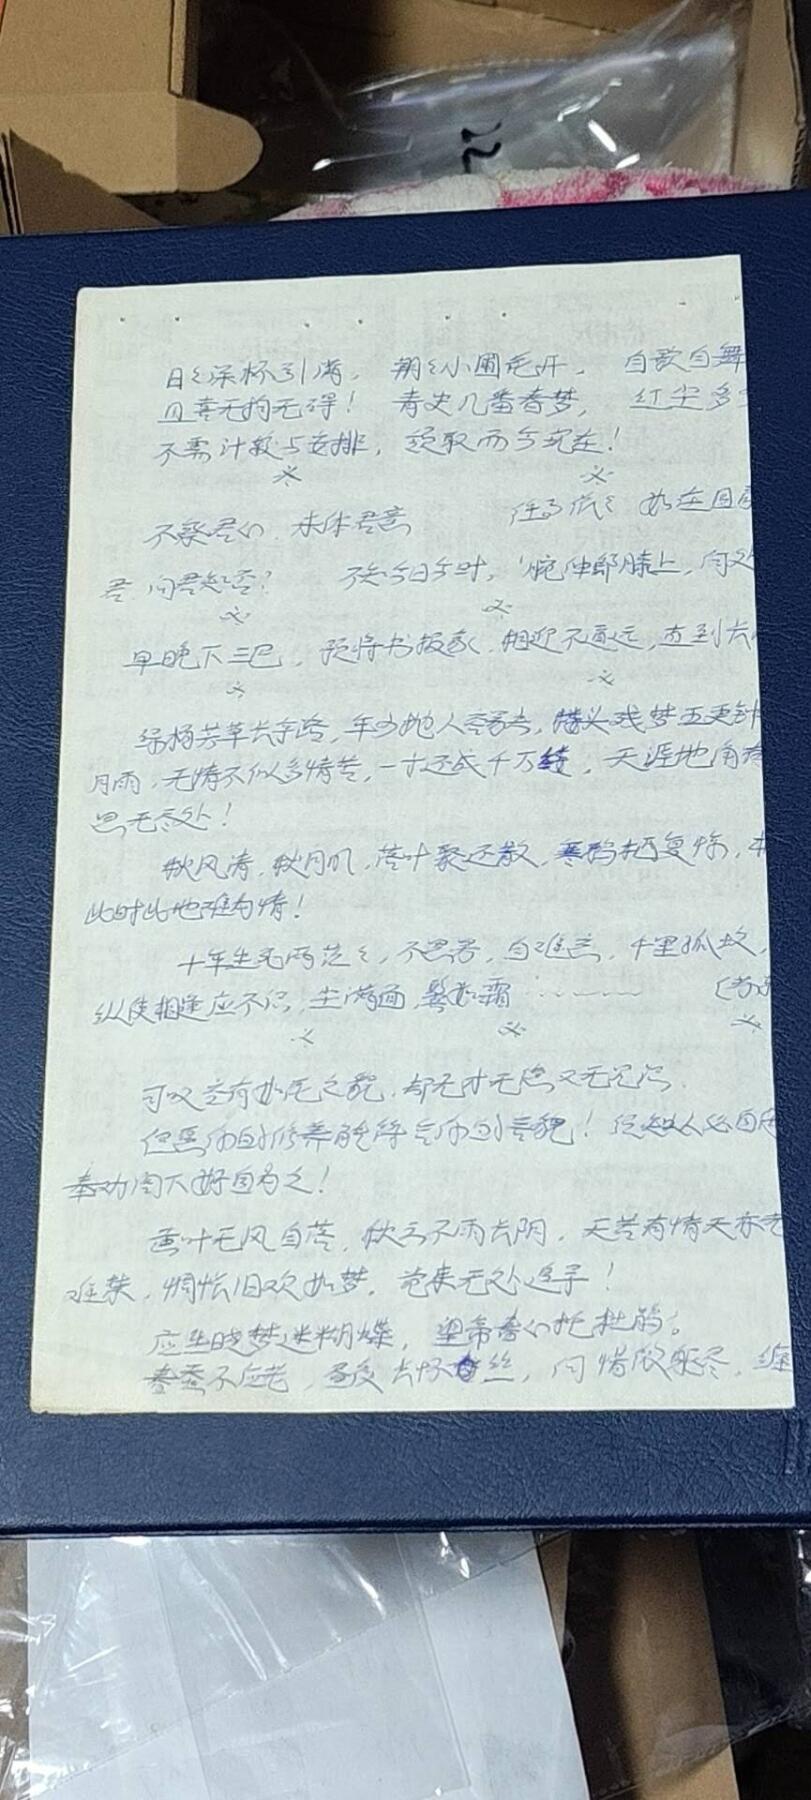 日々深杯引满，朝々小圃花开，自歌自舞
且喜无拘无碍！青史几番春梦，红尘多
不需计较与安排，领取而今现在！
不 君 未 君意
君 问君知否？ 不知今日今时， 郎膝上，何
早晚下三巴，预将书报家，相迎不道远，直到长
绿杨芳草长亭路，年少抛人容易去，楼头残梦五更钟
月雨，无情不似多情苦，一寸还成千万缕，天涯地角有
思无尽处！
秋风清，秋月明，落叶聚还散，寒鸦栖复惊，
此时此地难为情！
十年生死两茫々，不思君，自难忘，千里孤坟，
纵使相逢应不识，尘满面，鬓如霜
可叹空有如花之貌，却无才无 又无见识
但 的修养能 的言貌！ 人必自
奉劝阁下好自为之！
黄叶无风自落，秋云不雨长阴，天若有情天亦老
难禁，惆怅旧欢如梦，觉来无处追寻！
庄生晓梦迷蝴蝶，望帝春心托杜鹃。
春蚕不应老，昼夜长怀丝，何惜微躯尽，缠